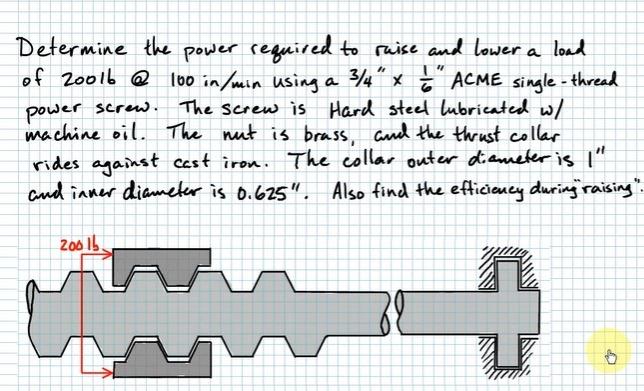 Determine the power required to raise and lower a load
of 200 lb @ 100 in/min using a 3/4" x 1/6" ACME single-thread
power screw. The screw is Hard steel lubricated w/
machine oil. The nut is brass, and the thrust collar
rides against cast iron. The collar outer diameter is 1"
and inner diameter is 0.625". Also find the efficiency during "raising".
200 lb